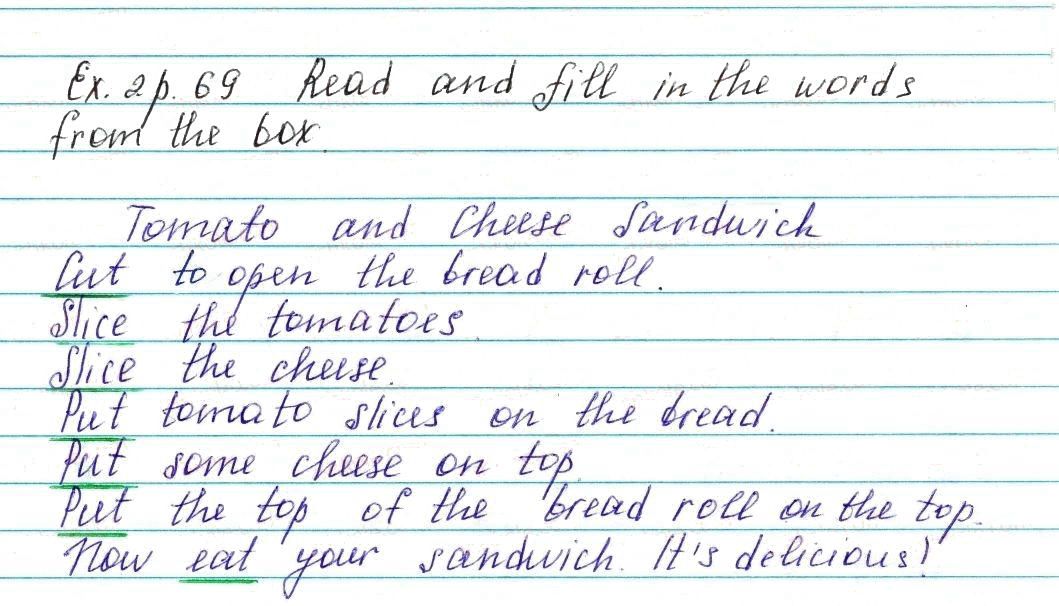 Ex. 2 p. 69 Read and fill in the words
from the box.
Tomato and Cheese Sandwich
Cut to open the bread roll.
Slice the tomatoes
Slice the cheese.
Put tomato slices on the bread.
Put some cheese on top
Put the top of the bread roll on the top.
Now eat your sandwich. It's delicious!